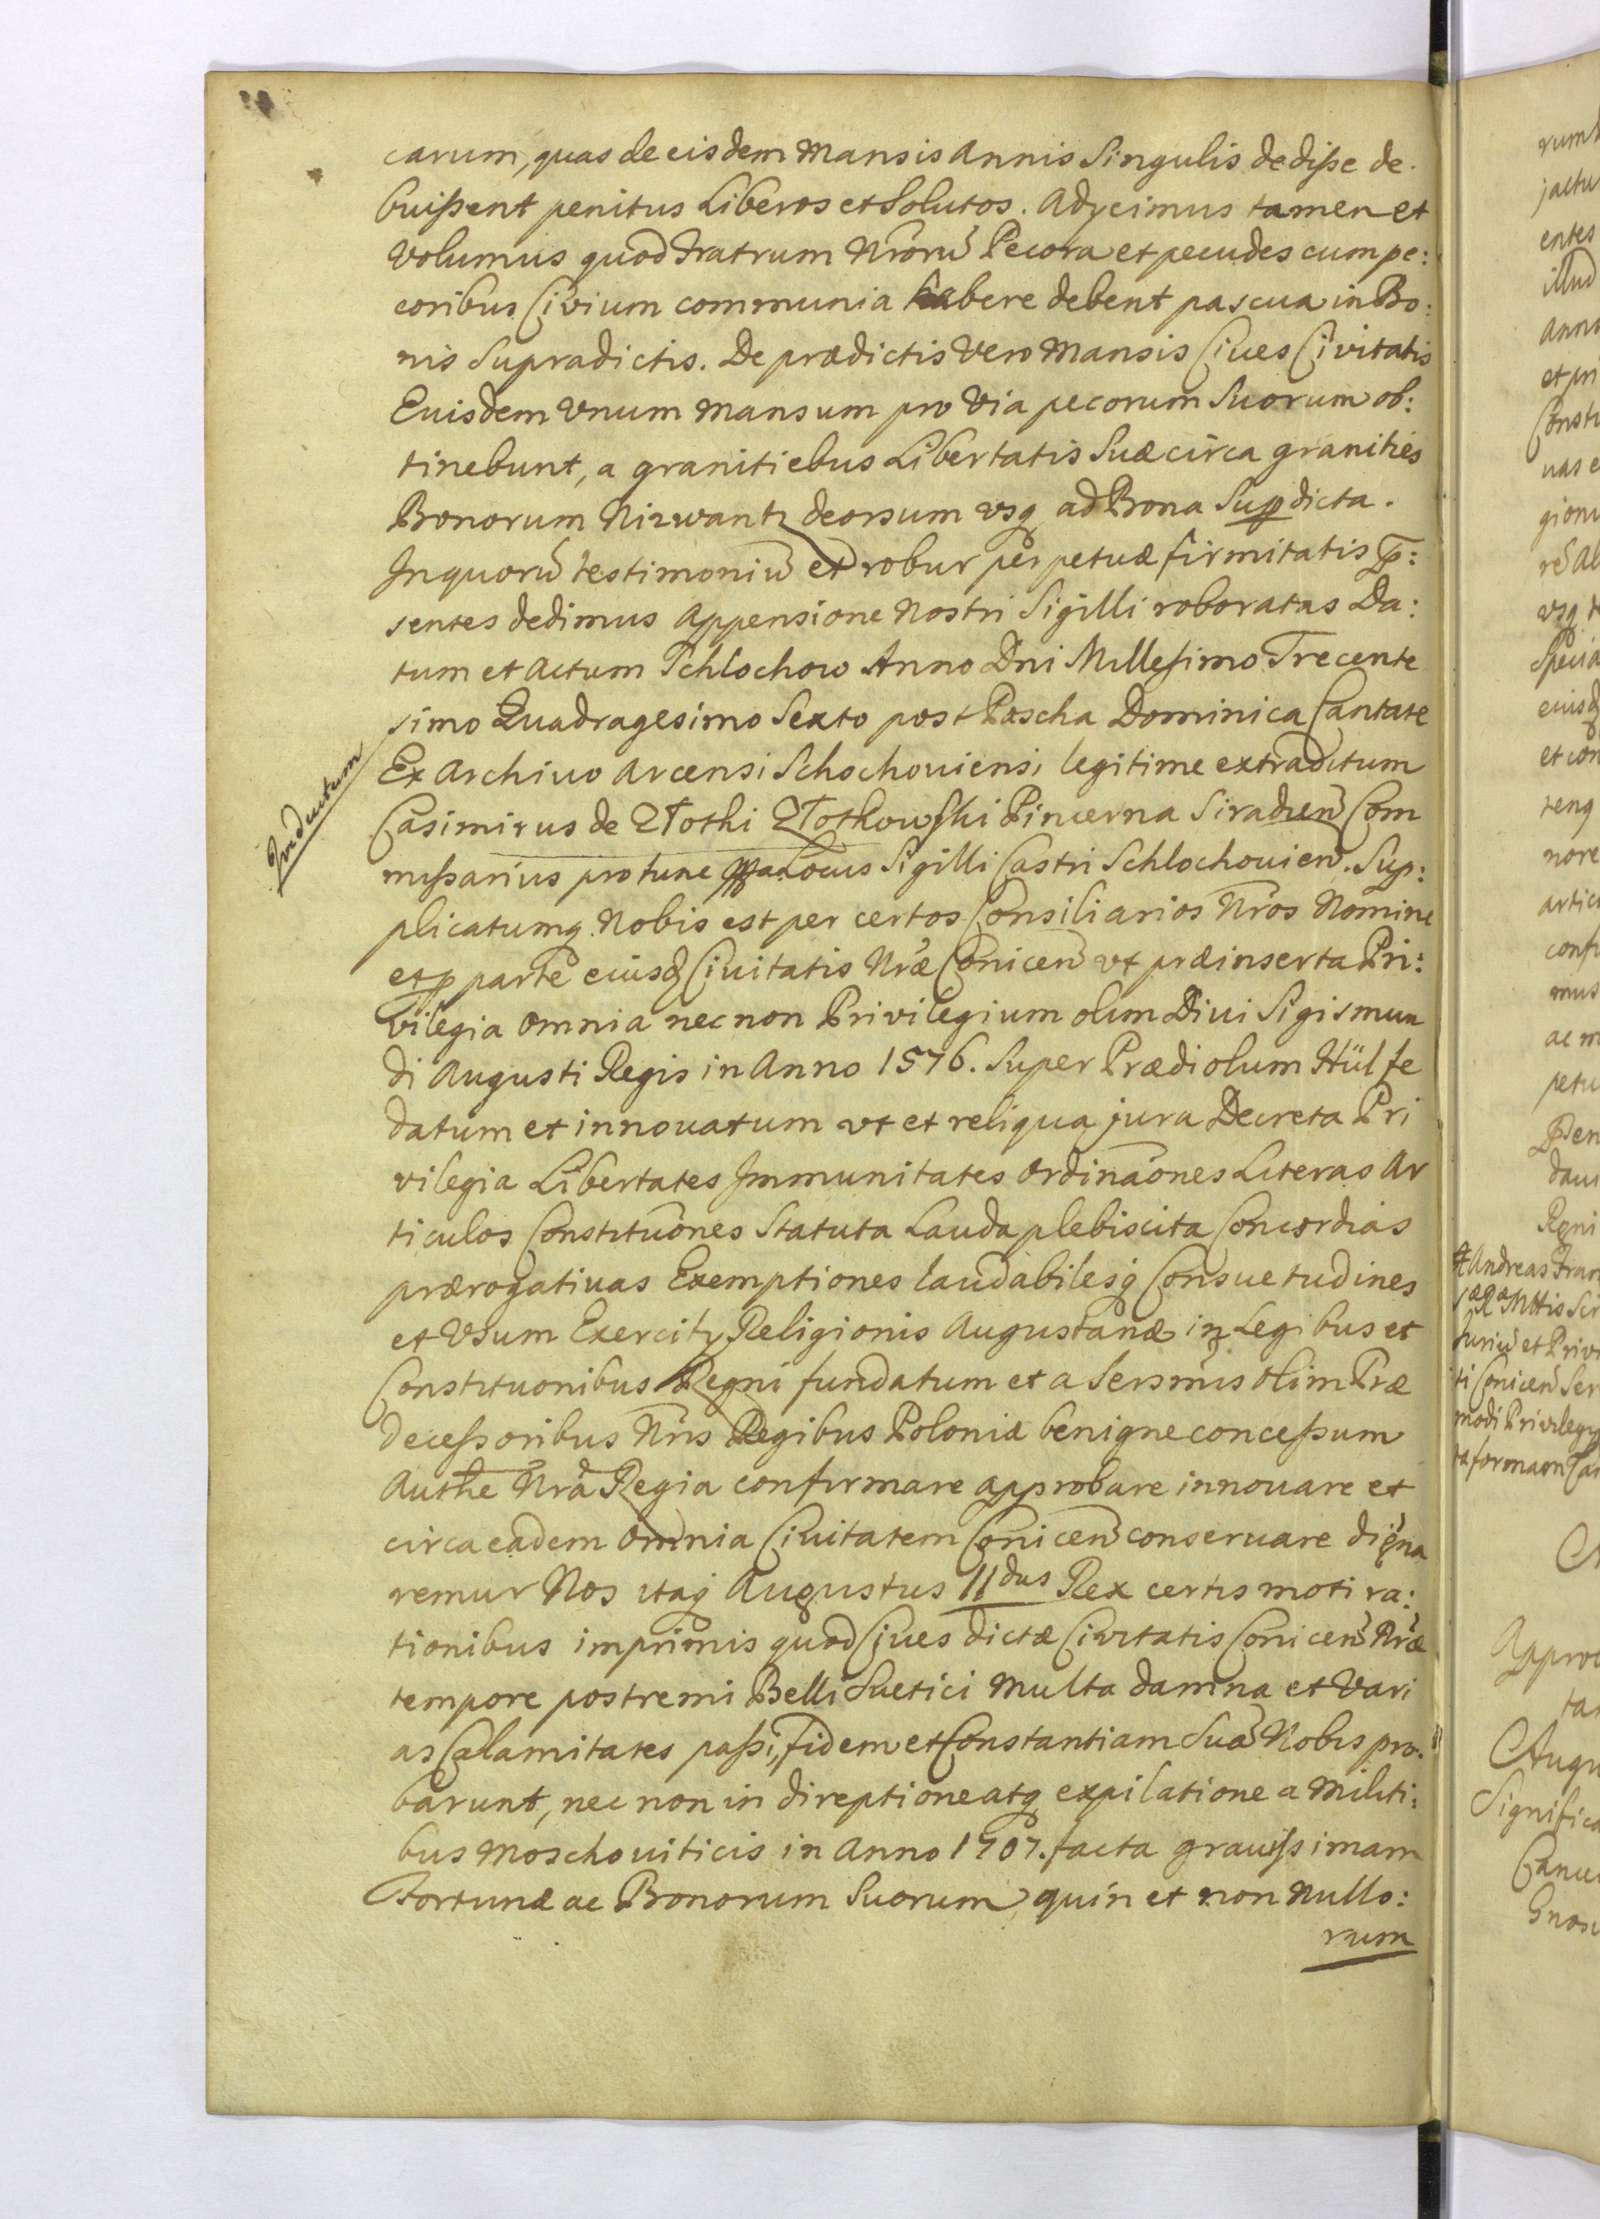 carum, quas de eisdem Mansis Annis Singulis dedisse de.
buissent penitus Liberos et Solutos. Adycimus tamen et
Volumus quod Fratrum Nrorũ Pecora et pecudes cum pe:
coribus Civium communia habere debent pascua in Bo:
nis Supradictis. De prædictis Vero Mansis Cives Civitatis
Euisdem Vnum Mansum pro Via pecorum Suorum ob:
tinebunt, a granitiebus Libertatis Suæ circa granities
Bonorum Nizwantz deorsum vsq ad Bona Supdicta.
In quorũ testimoniũ et robur perpetuæ firmitatis p:
sentes dedimus Appensione Nostri Sigilli roboratas Da:
tum et Actum Schlochow Anno Dni Millesimo Trecente
simo Quadragesimo Sexto post Pascha Dominica Cantate
Indutum
Ex Archiuo Arcensi Schochouiensi legitime extraditum
Casimirus de Złothi Złothowski Pincerna Siradien̄ Com
missarius pro tunc Locus Sigilli Castri Schlochouien̄. Sup:
plicatumq Nobis est per certos Consiliarios Nros Nomine
et p parte eiusd Ciuitatis Nræ Conicen̄ vt præinserta Pri:
vilegia omnia nec non Privilegium olim Diui Sigismun
di Augusti Regis in Anno 1576. Super Prædiolum Hülfe
datum et innouatum vt et reliqua jura Decreta Pri
vilegia Libertates Immunitates Ordinãones Literas Ar
ticulos Constituõnes Statuta Lauda plebiscita Concordias
prærogatiuas Exemptiones laudabilesq Consuetudines
et Vsum Exercity Religionis Augustanæ in Legibus et
Constituonibus Regni fundatum et a Sersmis olim Præ
decessoribus Nris Regibus Poloniæ benigne concessum
Authe Nrã Regia confirmare approbare innouare et
circa eadem omnia Ciuitatem Conicen̄ conseruare digna
remur Nos itaq Augustus IIdus Rex certis moti ra:
tionibus imprimis quod Ciues dictæ Civitatis Conicen̄ Nræ
tempore postremi Belli Suetici Multa damna et Vari
as Calamitates passi, fidem et Constantiam Suã Nobis pro:
barunt, nec non in direptione atq expilatione a Militi:
bus Moschouiticis in Anno 1707. facta grauissimam
Fortunæ ac Bonorum Suorum quin et non Nullo:
rum